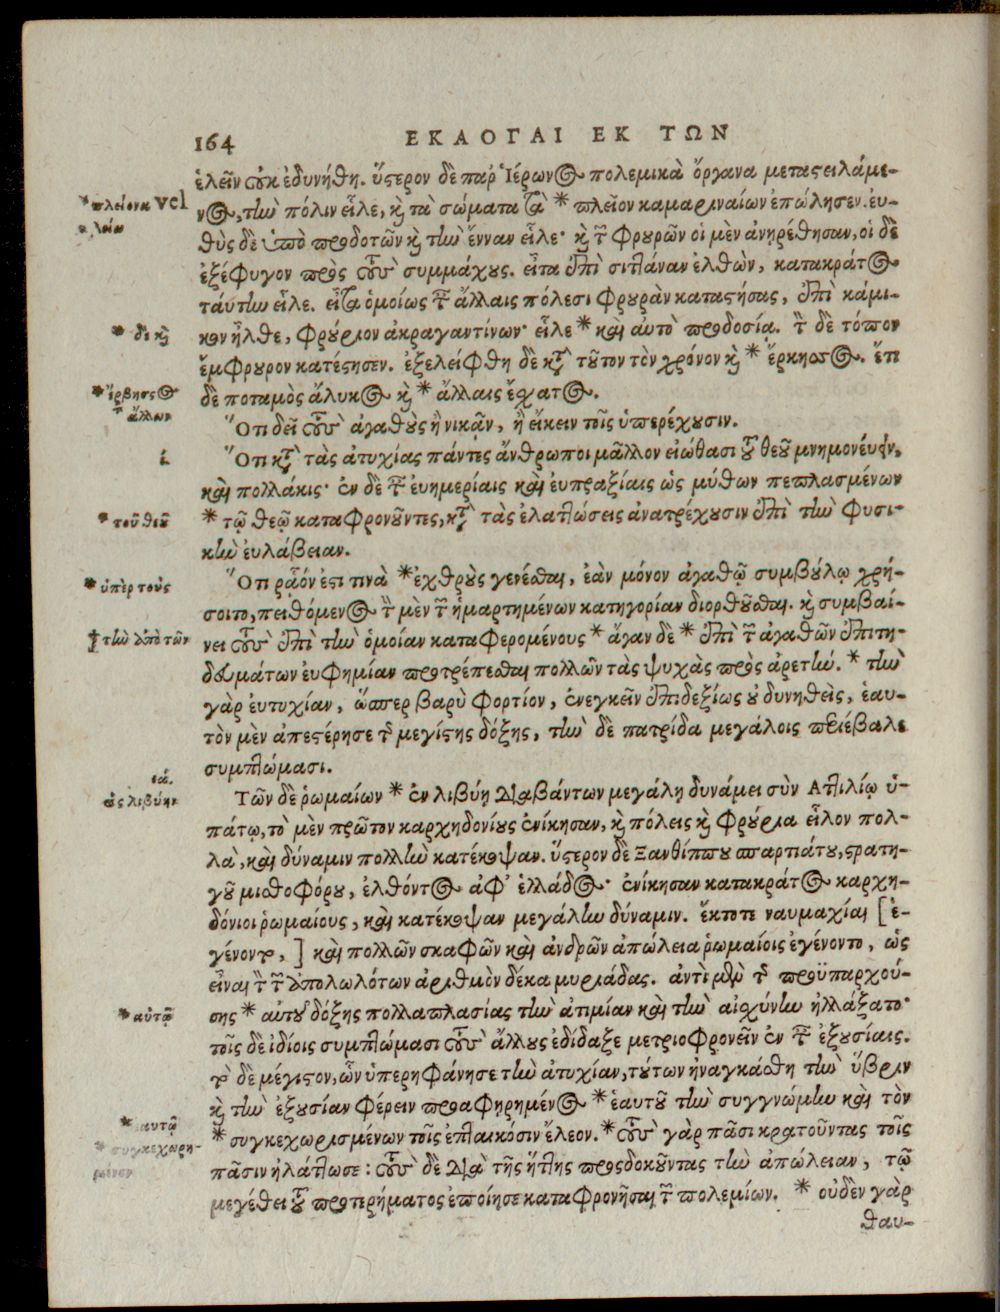 164 ΕΚΛΟΓΑΙ ΕΚ ΤΩΝ
ἑλεῖν οὐκ ἐδυνήθη. ὕστερον δὲ παρ' Ἱέρωνος πολεμικὰ ὄργανα μεταστειλάμε-
*πλείονα vel
πλοίῳ
νος, τὴν πόλιν εἷλε, καὶ τὰ σώματα τὰ *πλεῖον καμαριναίων ἐπώλησεν. εὐ-
θὺς δὲ ὑπὸ προδοτῶν καὶ τὴν ἔνναν εἷλε· καὶ τῶν φρουρῶν οἱ μὲν ἀνῃρέθησαν, οἱ δὲ
ἐξέφυγον πρὸς τοὺς συμμάχους. εἶτα ἐπὶ σιπλάναν ἐλθὼν, κατακράτος
ταύτην εἷλε. εἶτα ὁμοίως ταῖς ἄλλαις πόλεσι φρουρὰν καταστήσας, ἐπὶ κάμι-
*δὲ καὶ
κον ἦλθε, φρούριον ἀκραγαντίνων· εἷλε *καὶ αὐτὸ προδοσίᾳ. τὸν δὲ τόπον
ἔμφρουρον κατέστησεν. ἐξελείφθη δὲ κατὰ τοῦτον τὸν χρόνον καὶ *ἔρκησος. ἔτι
*ἔρβησσος
τῶν ἄλλων
δὲ ποταμὸς ἄλυκος καὶ *ἄλλαις ἔχατος.
Ὅτι δεῖ τοὺς ἀγαθοὺς ἢ νικᾷν, ἢ εἴκειν τοῖς ὑπερέχουσιν.
ι.
Ὅτι κατὰ τὰς ἀτυχίας πάντες ἄνθρωποι μᾶλλον εἰώθασι τοῦ θεοῦ μνημονεύειν,
καὶ πολλάκις· ἐν δὲ ταῖς εὐημερίαις καὶ εὐπραξίαις ὡς μύθων πεπλασμένων
*τοῦ θείου
*τῷ θεῷ καταφρονοῦντες, κατὰ τὰς ἐλαττώσεις ἀνατρέχουσιν ἐπὶ τὴν φυσι-
κὴν εὐλάβειαν.
*ὑπὲρ τοὺς
Ὅτι ρᾷόν ἐστι τινὰ *ἐχθροὺς γενέσθαι, ἐὰν μόνον ἀγαθῷ συμβούλῳ χρή-
σοιτο, πειθόμενος τὸν μὲν τῶν ἡμαρτημένων κατηγορίαν διορθοῦσθαι. καὶ συμβαί-
†τὴν ἀπὸ τῶν
νει τοὺς ἐπὶ τὴν ὁμοίαν καταφερομένους *ἄγαν δὲ *ἐπὶ τῶν ἀγαθῶν ἐπιτη-
δευμάτων εὐφημίαν προτρέπεσθαι πολλῶν τὰς ψυχὰς πρὸς ἀρετήν. *τὴν
γὰρ εὐτυχίαν, ὥσπερ βαρὺ φορτίον, ἐνεγκεῖν ἐπιδεξίως οὐ δυνηθεὶς, ἑαυ-
τὸν μὲν ἀπεστέρησε τῆς μεγίστης δόξης, τὴν δὲ πατρίδα μεγάλοις περιέβαλε
συμπτώμασι.
ια.
εἰς λιβύην
Τῶν δὲ ρωμαίων *ἐν λιβύῃ διαβάντων μεγάλῃ δυνάμει σὺν Ἀτιλίῳ ὑ-
πάτῳ, τὸ μὲν πρῶτον καρχηδονίους ἐνίκησαν, καὶ πόλεις καὶ φρούρια εἷλον πολ-
λὰ, καὶ δύναμιν πολλὴν κατέκοψαν. ὕστερον δὲ Ξανθίππου σπαρτιάτου, στρατη-
γοῦ μισθοφόρου, ἐλθόντος ἀφ' ἑλλάδος· ἐνίκησαν κατακράτος καρχη-
δόνιοι ρωμαίους, καὶ κατέκοψαν μεγάλην δύναμιν. ἔκτοτε ναυμαχίαι [ἐ-
γένοντο,] καὶ πολλῶν σκαφῶν καὶ ἀνδρῶν ἀπώλεια ρωμαίοις ἐγένοντο, ὡς
εἶναι τὸν τῶν ἀπολωλότων ἀριθμὸν δέκα μυριάδας. ἀντὶ μὲν τῆς προϋπαρχού-
*αὑτῷ
σης *αὐτοῦ δόξης πολλαπλασίας τὴν ἀτιμίαν καὶ τὴν αἰσχύνην ἠλλάξατο·
τοῖς δὲ ἰδίοις συμπτώμασι τοὺς ἄλλους ἐδίδαξε μετριοφρονεῖν ἐν ταῖς ἐξουσίαις.
τὸ δὲ μέγιστον, ὧν ὑπερηφάνησε τὴν ἀτυχίαν, τούτων ἠναγκάσθη τὴν ὕβριν
*ἑαυτῷ
καὶ τὴν ἐξουσίαν φέρειν προαφῃρημένος *ἑαυτοῦ τὴν συγγνώμην καὶ τὸν
*συγκεχωρη-
μένον
*συγκεχωρισμένων τοῖς ἐπταικόσιν ἔλεον. *τοὺς γὰρ πᾶσι κρατοῦντας τοῖς
πᾶσιν ἠλάττωσε: τοὺς δὲ διὰ τῆς ἥττης προσδοκοῦντας τὴν ἀπώλειαν, τῷ
μεγέθει τοῦ προτερήματος ἐποίησε καταφρονῆσαι τῶν πολεμίων. *οὐδὲν γὰρ
θαυ-